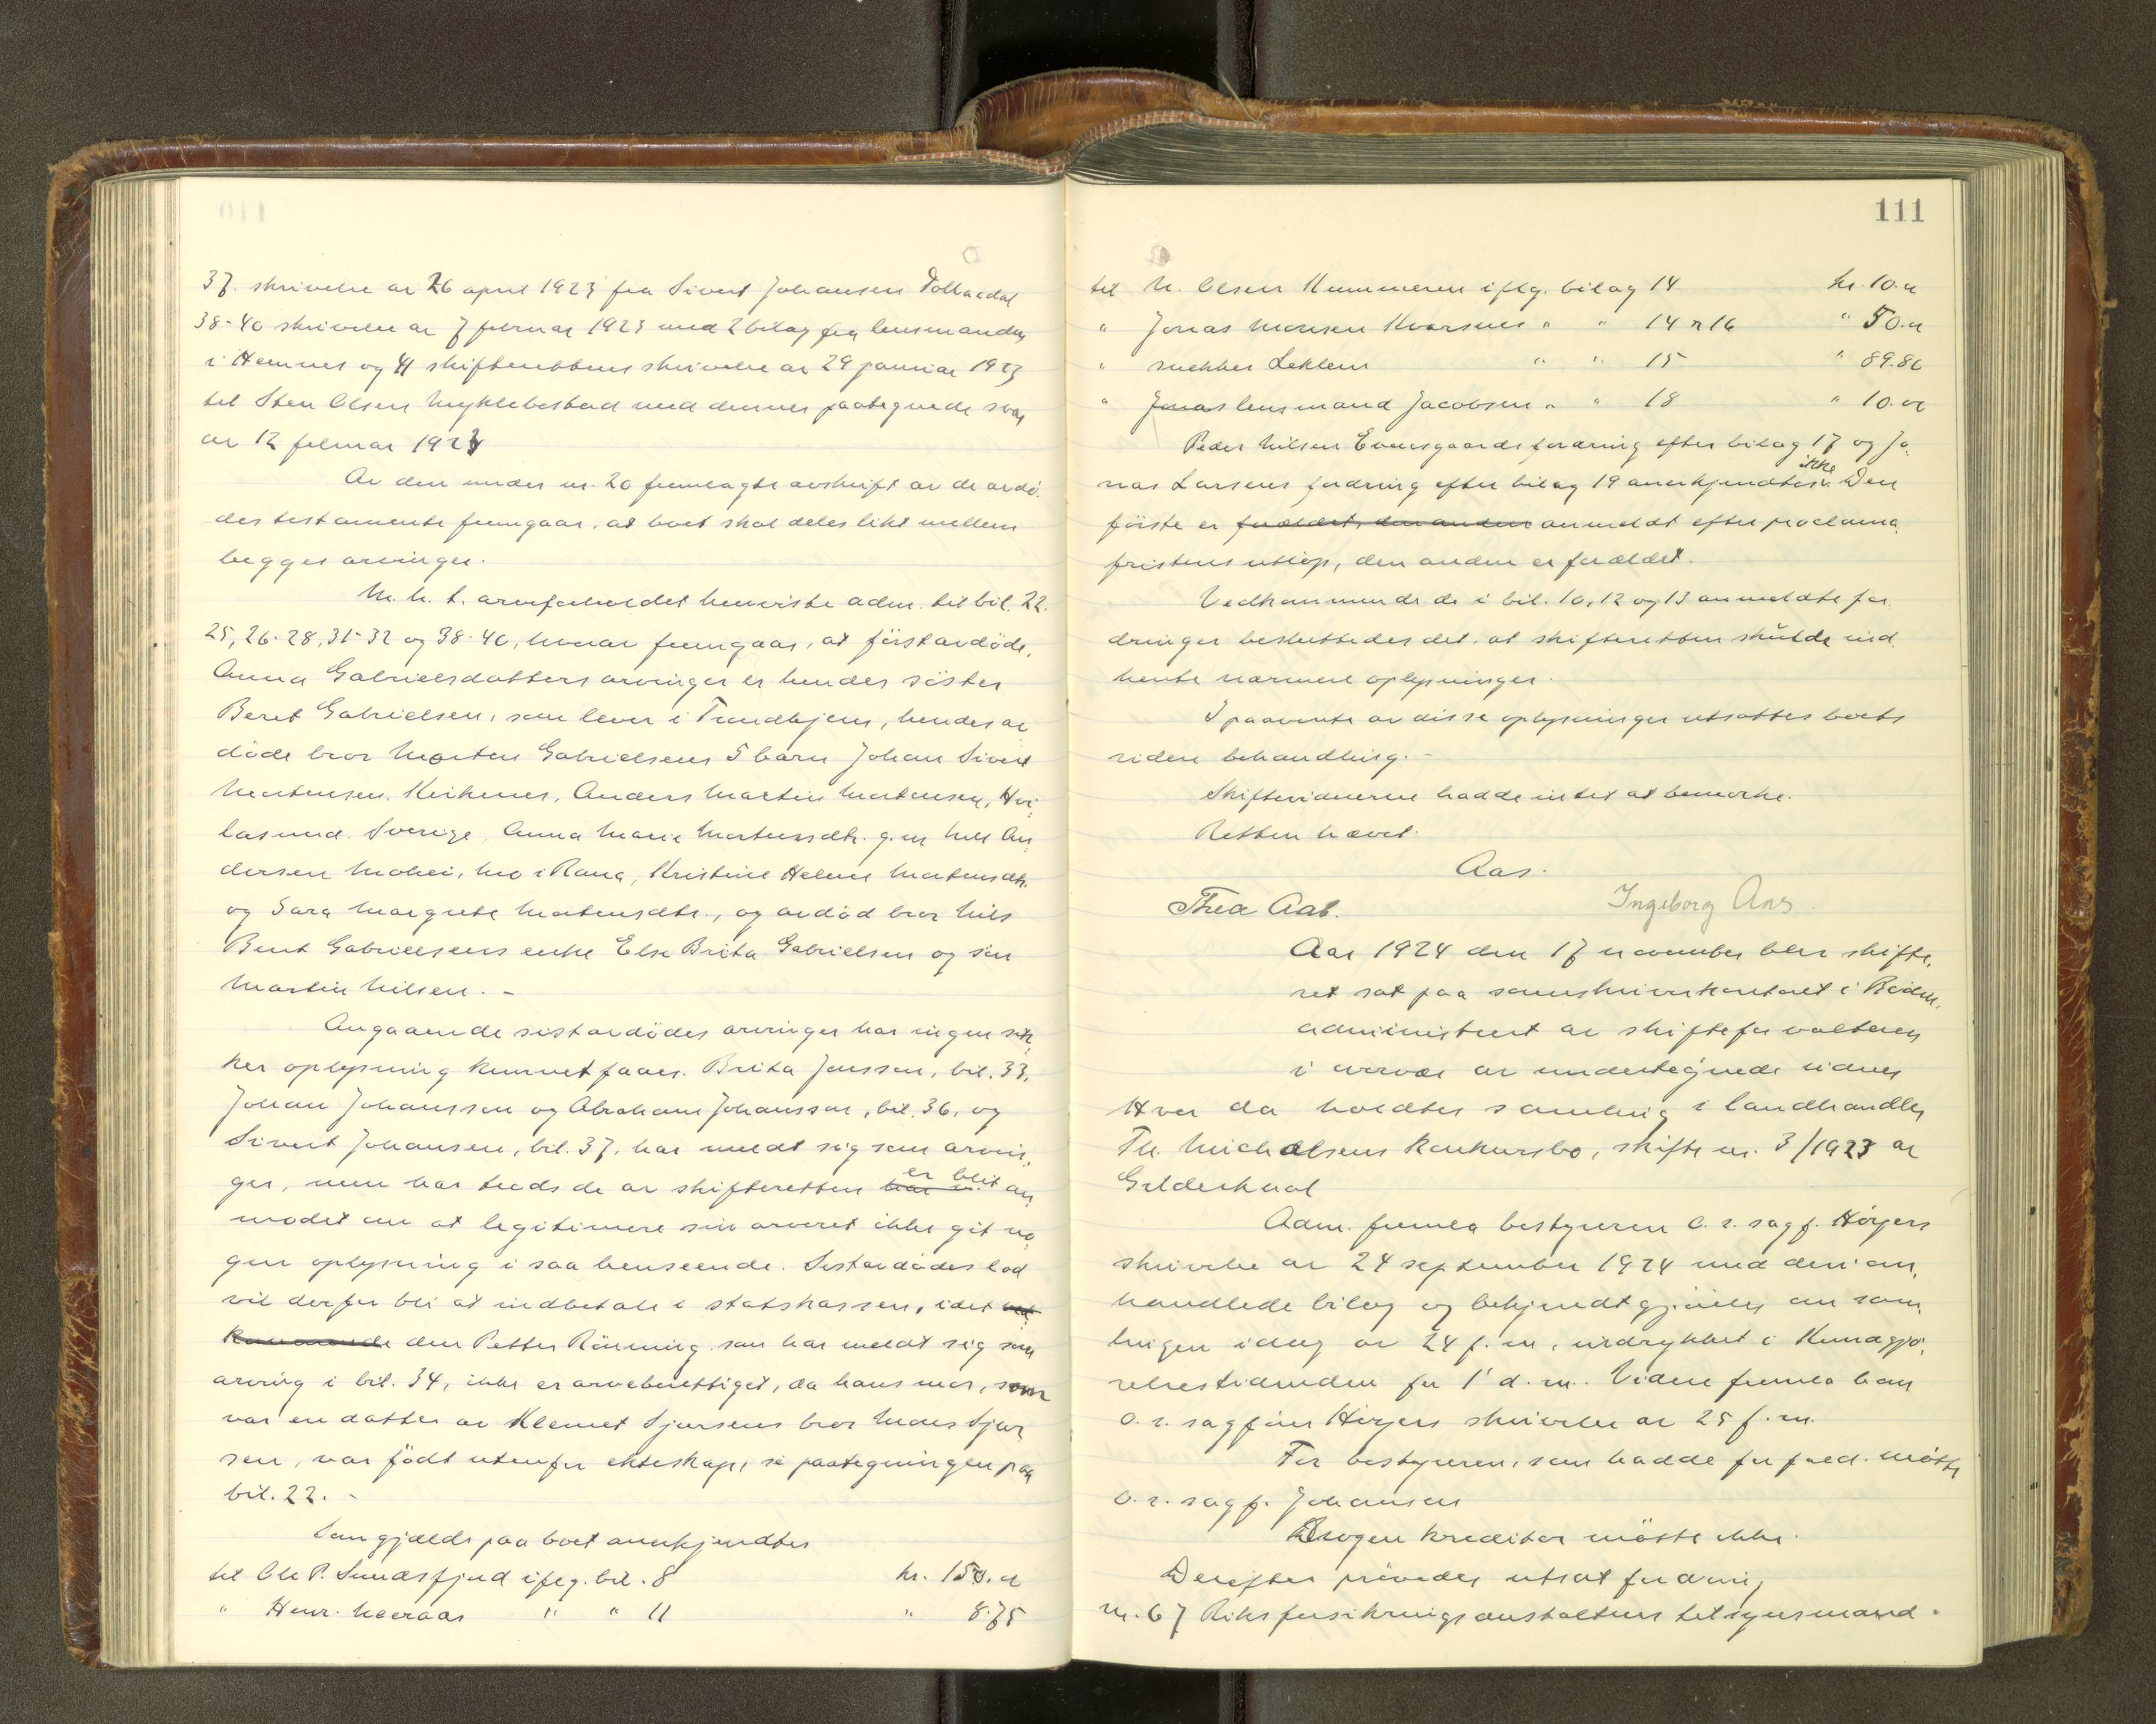 37. skrivelse av 26 april 1923 fra Sivert Johansen
38-40 skrivelse av 7 februar 1923 med 2 bilag fra lensmanden
i Hemnes og 41 skifterettens skrivelse av 29 januar 1923
til Sten Olsen Myklebostad med dennes paategnede svar
av 12 februar 1923
Av den under nr. 20 fremlagte avskrift av de avdö-
des testamente fremgaar, at boet skal deles likt mellem
begges arvinger.
M. h. t. arveforholdet henviste adm. til bil. 22.
25, 26-28, 31-32 og 38-40, hvorav fremgaar, at förstavdöde,
Anna Gabrielsdatters arvinger er hendes söster
Beret Gabrielsen, som lever i Trondhjem, hendes av
döde bror Morten Gabrielsens 5 barn Johan Sivert
Mortensen, Kirkenes, Anders Martin Mortensen,
Sverige, Anna Marie Mortensdtr. g. m. An-
dersen Mohei, Mo i Rana, Kristine Helene Mortensdtr.
og Sara Margrete Mortensdtr., og avdöd bror Nils
Bent Gabrielsens enke Else Brita Gabrielsen og sön
Martin Nilsen. -
Angaaende sistavdödes arvinger har ingen sik-
ker oplysning kunnet faaes. Brita Jonsson, bil. 33,
Johan Johansson og Abraham Johansson, bil. 36, og
Sivert Johansen, bil. 37, har meldt sig som arvin-
ger, men har tiltrods de av skifteretten er blit an
modet om at legitimere sin arveret ikke git no-
gen oplysning i saa henseende. Sistavdödes lod
vil derfor bli at indbetale i statskassen, idet
den Petter Rönning som har meldt sig som
arving i bil. 34, ikke er arveberettiget, da hans mor, som
var en datter av Klemet Sjursens bror Mons Sjur-
sen, var födt utenfor ekteskap, se paategningen paa
bil. 22. -
Som gjæld paa boet anerkjendtes
til Ole P. Sundsfjord ifölg. bil. 8 kr. 150.00
" Henr. Meeraas " " 11 " 8.75
111
til N. Olsen Hemmeren iflg. bilag 14 kr. 10.00
" Jonas Monsen " " 14 n 16 " 50.00
" snekker Leklem " " 15 " 89.80
" Jonas lensmand Jacobsen " " 18 " 10.00
Peder Nilsen Evensgaards fordring efter bilag 17 og Jo-
nas Larsens fordring efter bilag 19 anerkjendtes ikke. Den
förste er forældet, den anden anmeldt efter proclama
fristens utlöp, den anden er forældet.
Vedkommende de i bil. 10, 12 og 13 anmeldte for-
dringer besluttedes det, at skifteretten skulde ind
hente nærmere oplysninger.
I paavente av disse oplysninger utsattes boets
videre behandling. -
Skiftevidnerne hadde intet at bemerke.
Retten hævet.
Aas.
Thea Aas. Ingeborg Aas.
Aar 1924 den 17 november blev skifte-
ret sat paa sorenskriverkontoret i Bodin,
administrert av skifteforvalteren
i overvær av undertegnede vidner
Hvor da holdtes samling i landhandler
Th. Michalsens konkursbo, skifte nr. 3/1923 av
Gildeskaal
Adm. fremla bestyreren o. r. sagf. Höyers
skrivelse av 24 september 1924 med deri om-
handlede bilag og bekjendtgjörelse om sam-
lingen idag av 24 f. m., inrykket i Kundgjö-
relsestidenden for 1' d. m. Videre fremla han
o. r. sagförer Höyers skrivelse av 25 f. m.
For bestyreren, som hadde for fald mötte
o. r. sagf. Johansen
Nogen kreditor mötte ikke.
Derefter prövedes utsat fordring
nr. 67 Riksforsikringsanstaltens tilsynsmand